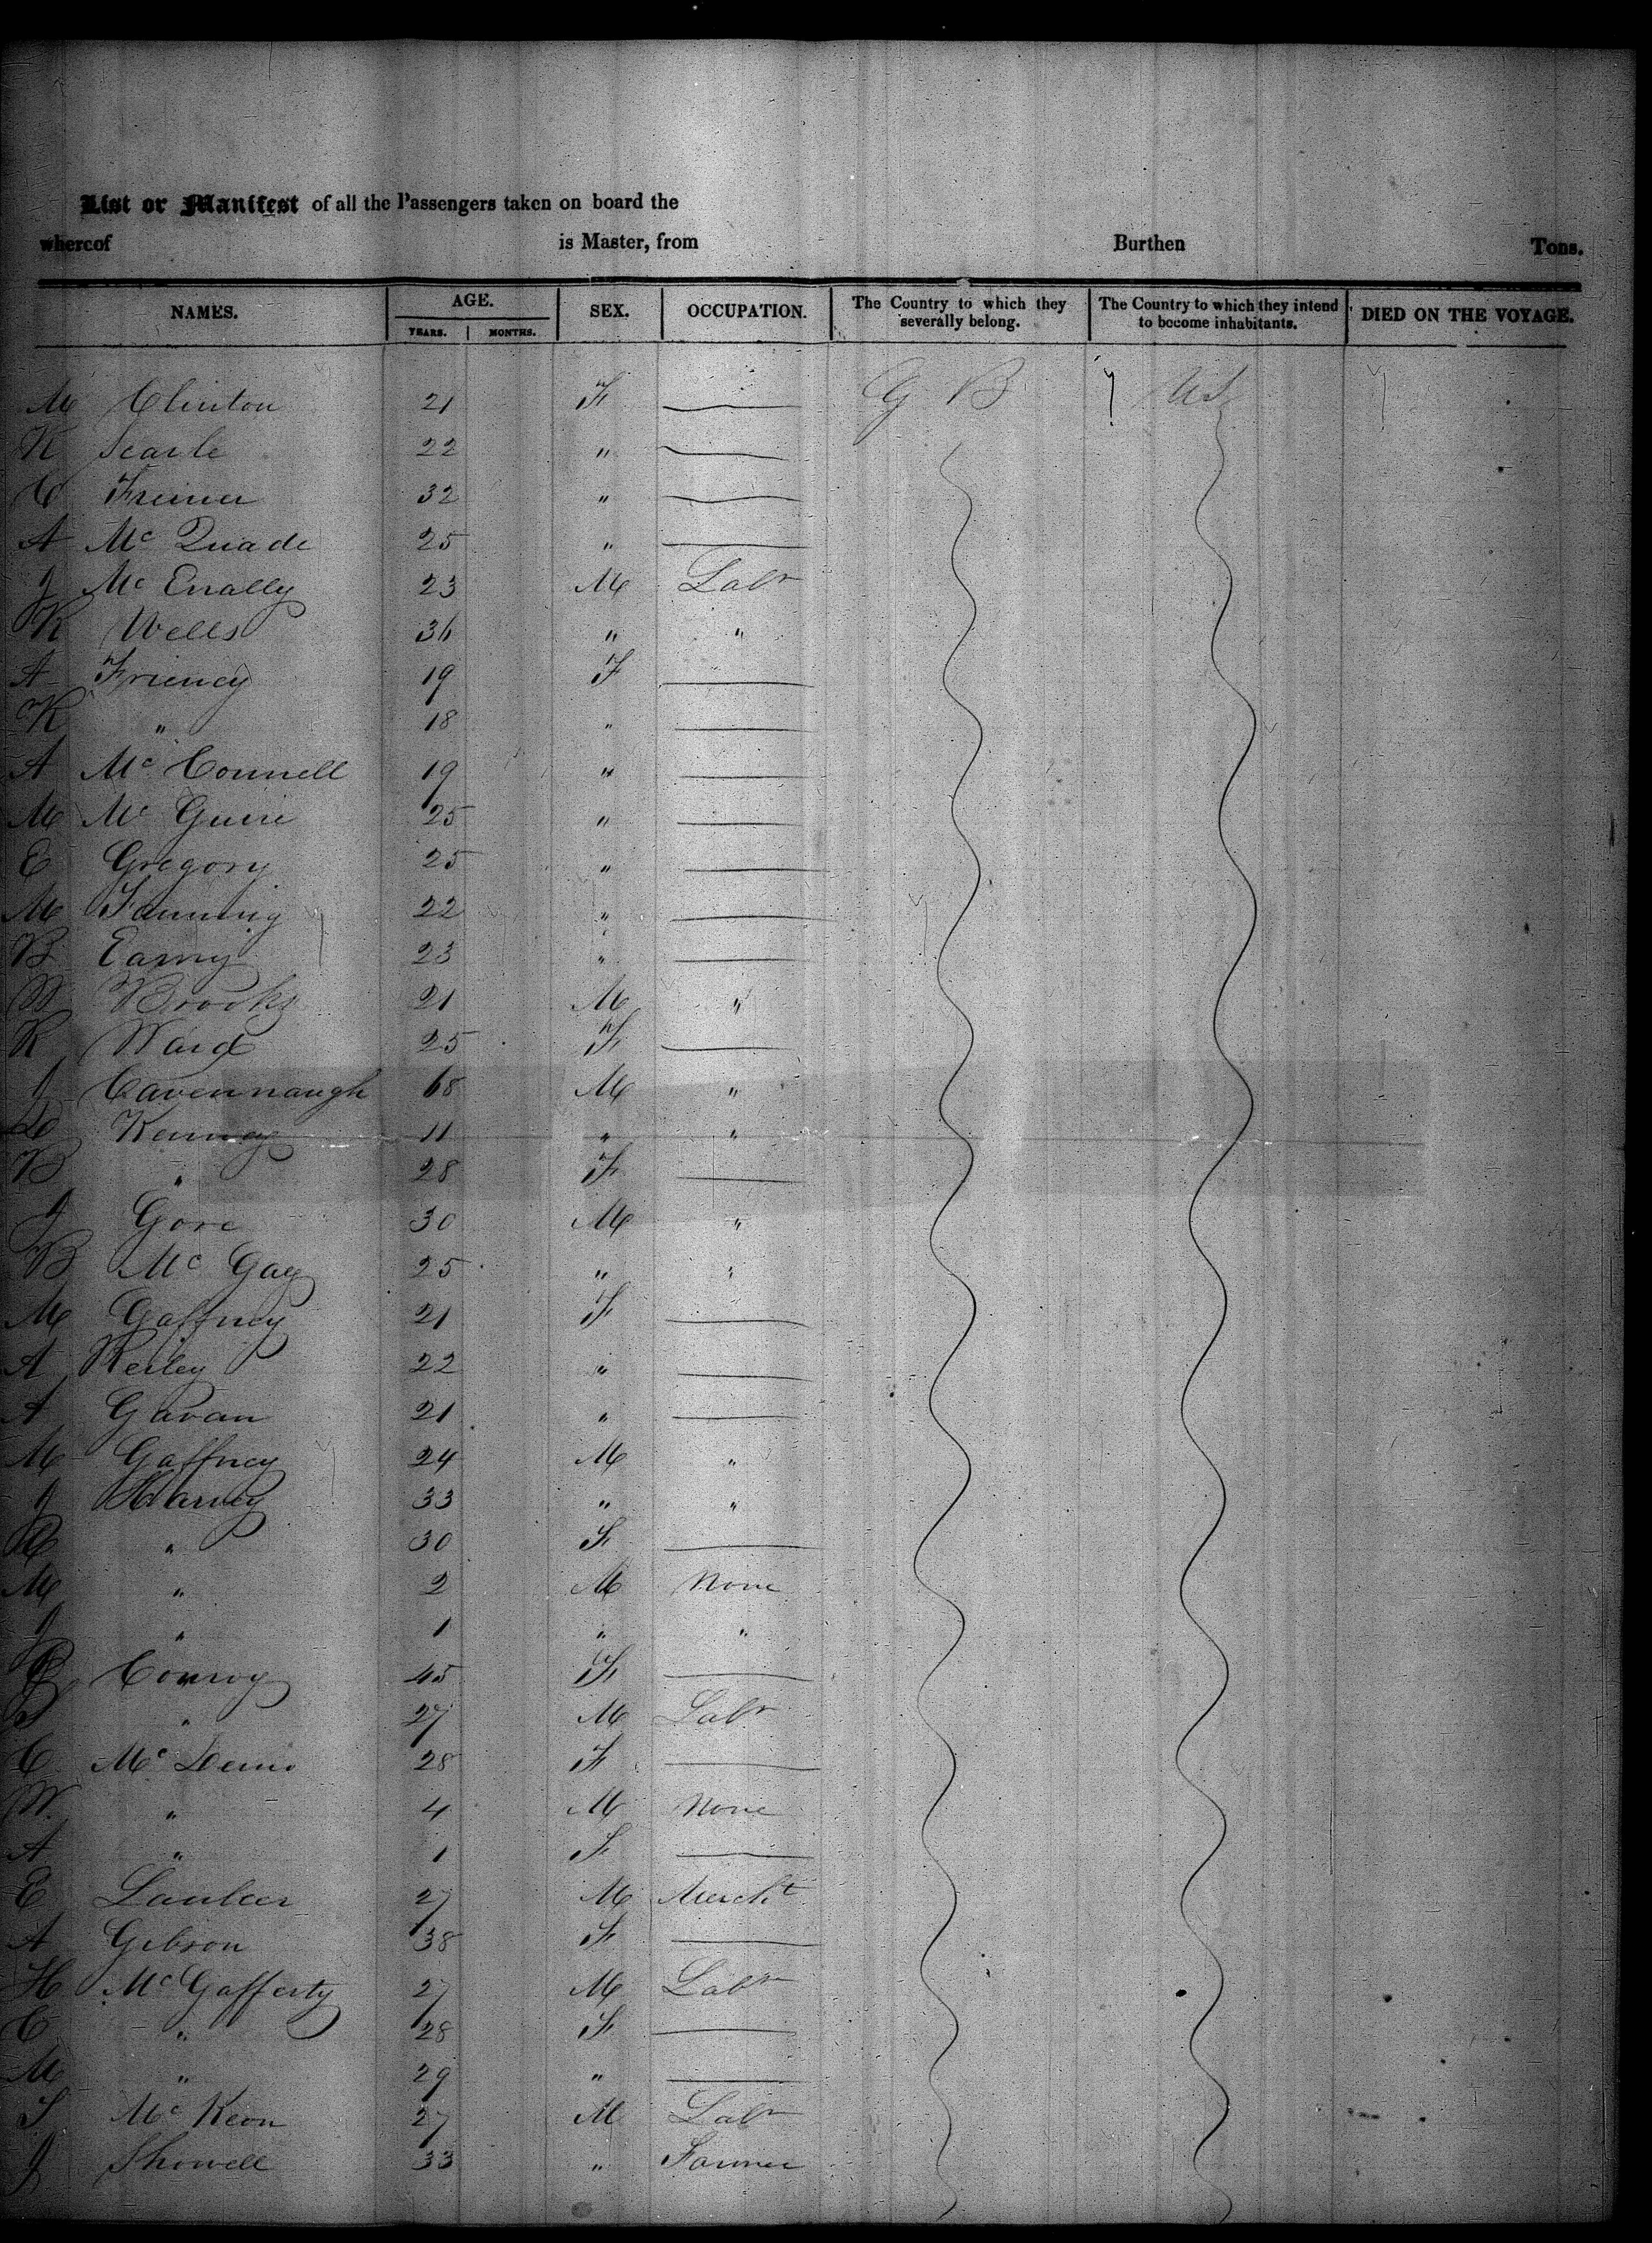 List or Manifest of all the Passengers taken on board the
whereof is Master, from Burthen Tons.
NAMES. AGE. SEX. OCCUPATION. The Country to which they severally belong. The Country to which they intend to become inhabitants. DIED ON THE VOYAGE.
YEARS. MONTHS.
M Clinton 21 F G B U S
K Searle 22 "
C 32 "
A Mc Quade 25 "
J Mc Enally 23 M Labr
K Wells 36 " "
A Frieney 19 F
K " 18 "
A Mc Connell 19 "
M Mc Guire 25 "
E Gregory 25 "
M Fanning 22 "
B 23 "
W Brooks 21 M "
K Ward 25 F
J Cavennaugh 68 M "
Kenney 11 " "
B " 28 F
J Gore 30 M "
B Mc Gay 25 " "
M Gaffney 21 F
A Reiley 22 "
A Gavan 21 "
M Gaffney 24 M "
J Harvey 33 " "
" 30 F
M " 2 M None
J " 1 " "
Conroy 45 F
" 27 M Labr
C Mc 28 F
W. " 4 M None
A " 1 F
E 27 M Mercht
A Gibson 38 F
H Mc Gafferty 27 M Labr
C " 28 F
M " 29 "
S Mc Keon 27 M Labr
J Showell 33 " Farmer